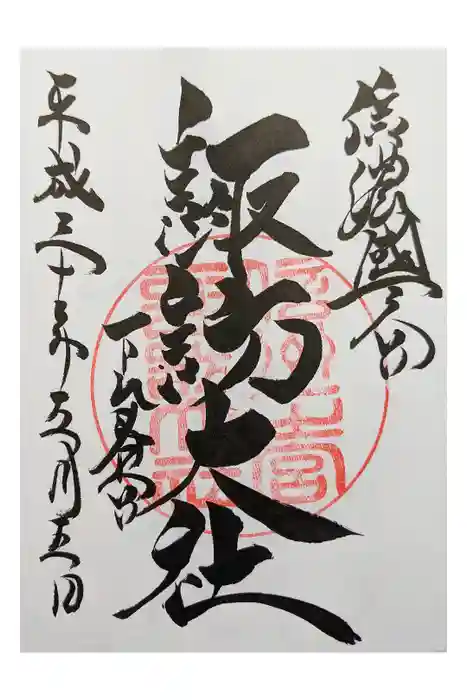 信濃國一之宮
諏訪大社
下社春宮
平成二十三年五月五日